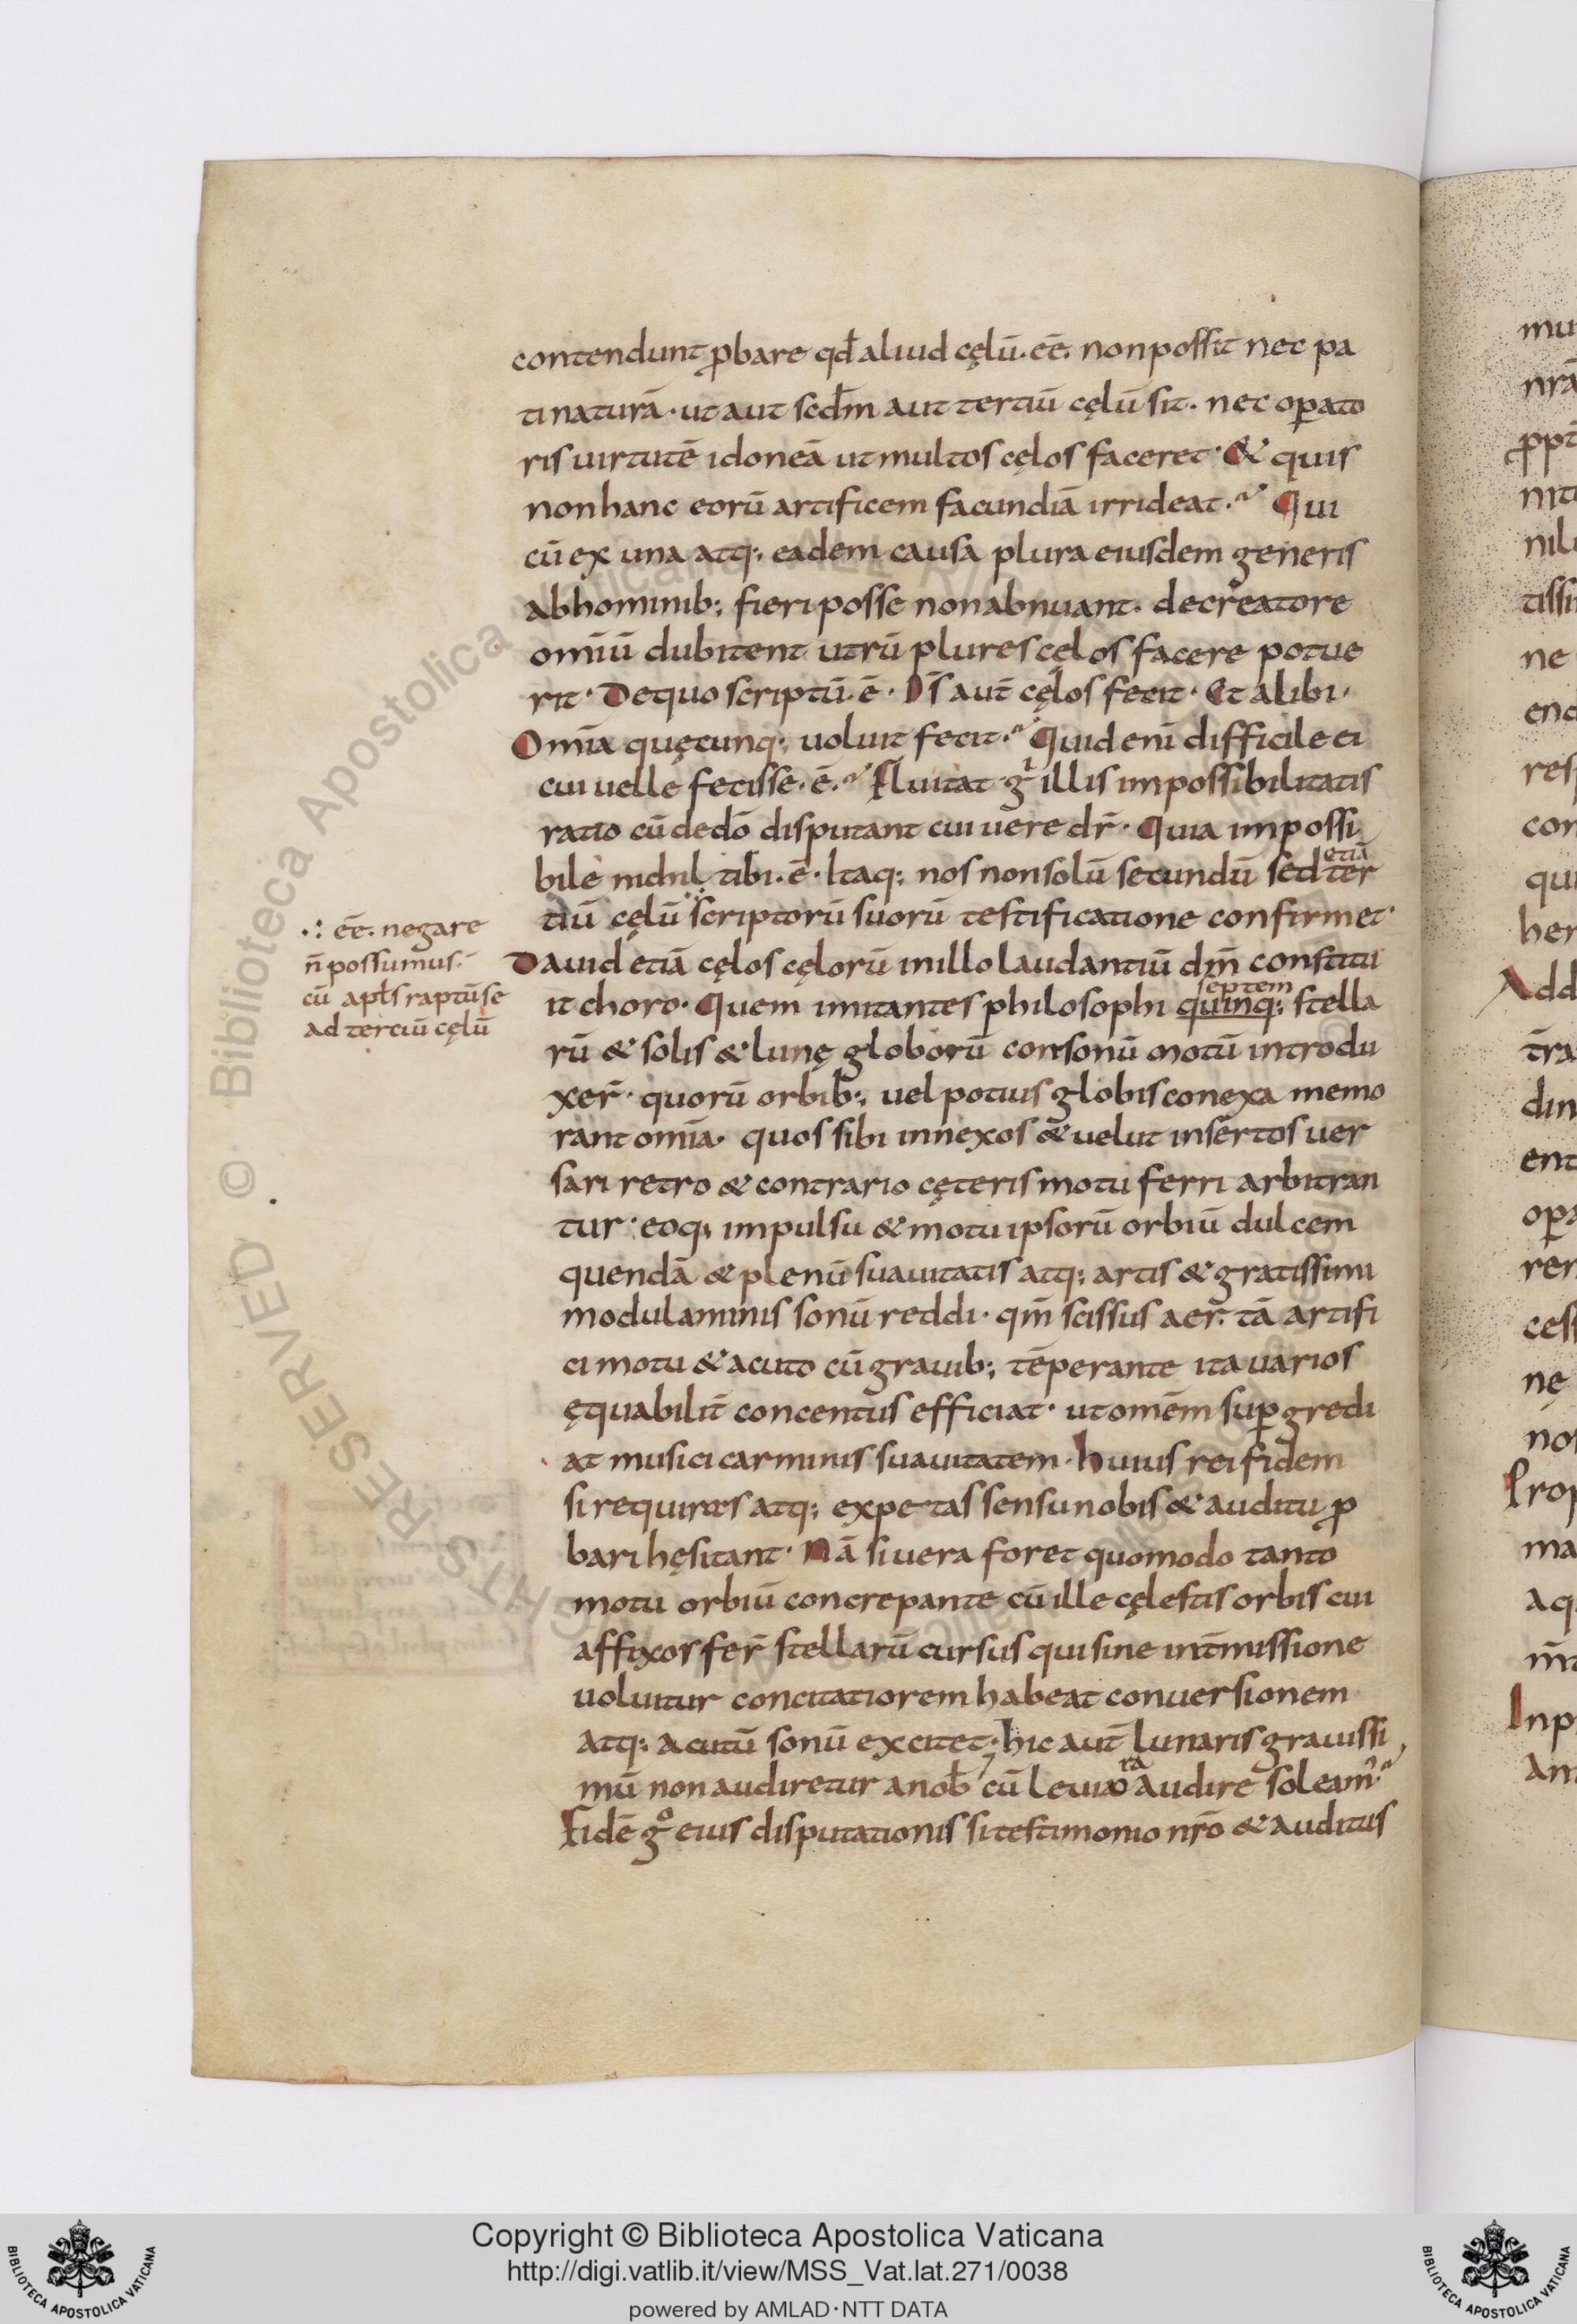 contendunt ꝓbare qđ aliud cęlū. eē. non possit nec pa
ti naturā · ut aut scđm aut tertiū cęlū sit. nec oꝑato
ris uirtutē idoneā ut multos cęlos faceret · & quis
non hanc eorū artificem facundiā irrideat. Qui
cū ex una atq; eadem causa plura eiusdem generis
ab hominib; fieri posse non abnuant. de creatore
omīū dubitent utrū plures cęlos facere potue
rit · De quo scriptū. ē · Ds̄ aut̄ cęlos fecit · Et alibi ·
Omīa quęcunq; uoluit fecit. Quid enī difficile ei
cui uelle fecisse. ē. Fluitat gͥ illis impossibilitatis
ratio cū de dō disputant cui uere dr̄ · Quia impossi
bile nichil tibi. ē · Itaq; nos non solū secundū sed etiā ter
tiū cęlū scriptorū suorū testificatione confirmet ·
∴ eē. negare
n̄ possumus.
cū apłs raptū se
ad terciū cęlū
Dauid etiā cęlos cęlorū in illo laudantiū dm̄ constitu
it choro · Quem imitantes philosophi quinq; septem stella
rū & solis & lunę globorū consonū motū introdu
xer̄ · quorū orbib; uel potius globis conexa memo
rant omīa · quos sibi innexos & uelut insertos uer
sari retro & contrario cęteris motu ferri arbitran
tur · eoq; impulsu & motu ipsorū orbiū dulcem
quendā & plenū suauitatis atq; artis & gratissimi
modulaminis sonū reddi · qm̄ scissus aer. tā artifi
ci motu & acuto cū grauib; tēperante ita uarios
ęquabilit̄ concentus efficiat · ut omēm suꝑgredi
at musici carminis suauitatem · Huius rei fidem
si requiras atq; expetas sensu nobis & auditu ꝓ
bari hęsitant · Nā si uera foret quomodo tanto
motu orbiū concrepante cū ille cęlestis orbis cui
affixos fer̄ stellarū cursus qui sine int̄missione
uoluitur concitatiorem habeat conuersionem
atq; acutū sonū excitet · hic aut̄ lunaris grauissi
mū non audiretur a nob̄ cū leuiora audire soleam᾽
Fidē gͦ eius disputationis si testimonio nr̄o & auditus
Copyright © Biblioteca Apostolica Vaticana
http://digi.vatlib.it/view/MSS_Vat.lat.271/0038
powered by AMLAD·NTT DATA